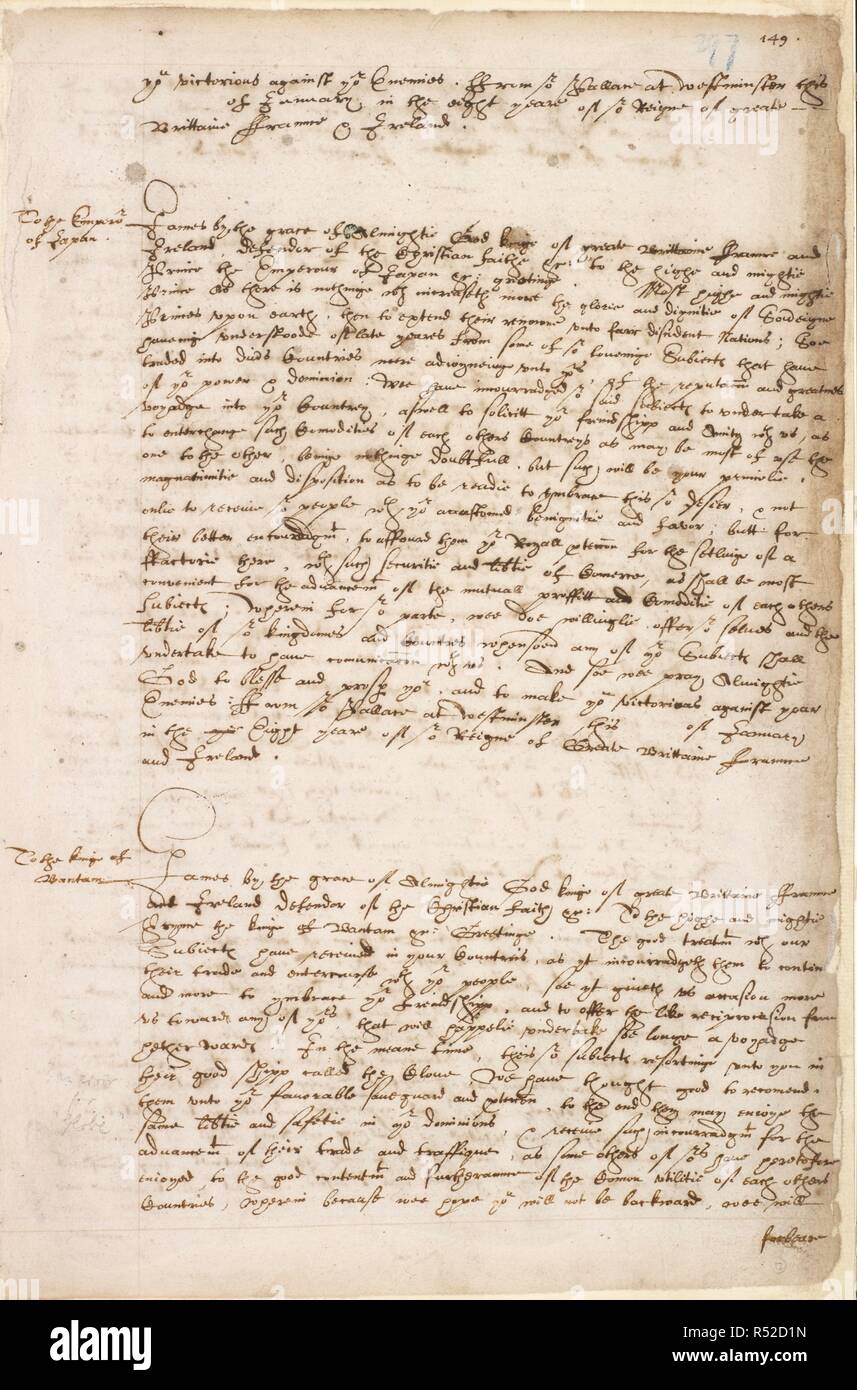 297 149.
yor victorious against yor Enemies. ffrom or Pallace at westminster this
of January, in the eight yeare of or Reigne of greate
Brittaine ffraunce & Ireland.
To the Emperor
of Japan.
James by the grace of Almightie God kinge of greate Brittaine ffraunce and
Ireland, defendor of the Christian faithe &c: to the highe and mightie
Prince the Emperour of Japan &c: greeting. Most highe and mightie
Prince As there is nothinge wch increaseth more the glorie and dignitie of Soveraigne
Princes upon earth, then to extend their renowne unto farr distident Nations; Soe
haveing understoode of late yeares from some of or lovinge Subiects that have
traded into divers Countries neere adioygneing unto yors, of the reputacon and greatnes
of yor power & dominion: Wee have incourradged or said subiects to undertake a
voyadge into yor Countrey, aswell to solicitt yor freindshipp and Amity wth us, as
to enterchange such Comodities of each others Countreys as may be most of use the
one to the other, beinge nothinge doubtfull, but such will be your princelie
magnanimitie and disposition as to be readie to ymbrace this or desier, & not
onlie to receive or people wth yor accustomed benignitie and favor; butt for
their better encouradgmt, to affourd them yor Royall proteccon for the setlinge of a
ffactorie there, wth such securitie and libtie of Comerce, as shall be most
convenient for the advancemt of the mutuall proffitt and Comoditie of each others
Subiects; Wherein for or parte, wee doe willinglie offer or selves and the
libtie of or kingdomes and Countries whensoevr any of yor Subiects shall
undertake to have comunicacon wth us. And soe wee pray Almightie
God to blesse and prosper yor, and to make yor victorious against your
Enemies: ffrom or Pallace at westminster this of January
in the Eight yeare of or Reigne of Greate Brittaine ffraunce
and Ireland.
To the kinge of
Bantam
James by the grace of Almightie God kinge of greate Brittaine ffraunce
and Ireland defendor of the Christian faith &c: To the highe and mightie
Prynce the kinge of Bantam &c: Greetinge. The good treatmt wch our
Subiects have received in your Countries, as yt incourradgeth them to contin
their trade and entercourse wth yor people, soe yt giveth us occasion more
and more to ymbrace yor freindshipp, and to offer the like reciprocation from
us towards any of yors, that will happelie undertake soe longe a voyadge
hether wards. In the meane time, theis or subiects resortinge unto you in
their good shipp called the Glove, We have thought good to recomend
them unto yor favorable savegard and proteccon, to the end they may enioye the
same libtie and safetie in yor dominions, & receive such incourradgmt for the
advancemt of their trade and traffique, as some others of ors have heretofore
enioyed, to the good contentmt and furtherance of the Comon utilitie of each others
Countries, wherein because wee hope yor will not be backward, wee will
forbeare
alamy
Image ID: R52D1N
www.alamy.com